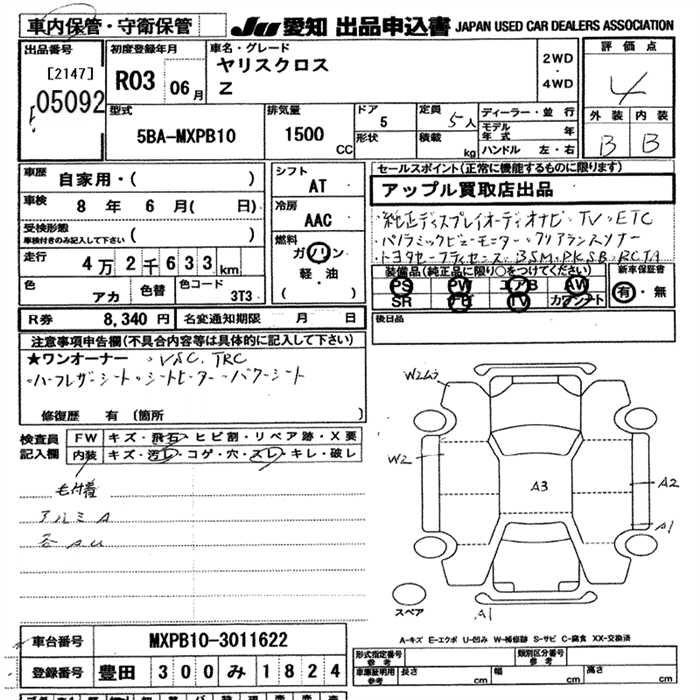 車内保管・守衛保管
JU 愛知 出品申込書 JAPAN USED CAR DEALERS ASSOCIATION
出品番号
[2147]
05092
初度登録年月
R03 06月
車名・グレード
ヤリスクロス
Z
2WD
・
4WD
評価点
4
外装 内装
B B
型式
5BA-MXPB10
排気量
1500 CC
ドア
5
形状
定員
5人
積載 kg
ディーラー・並行
モデル年式 年
ハンドル 左・右
車歴
自家用・( )
車検
8年 6月( 日)
受検形態
車検付きのみ記入して下さい ( )
走行
4万2千633km
色
アカ
色替
色コード
3T3
シフト
AT
冷房
AAC
燃料
ガソリン
軽・油
( )
セールスポイント(正常に機能するものに限ります)
アップル買取店出品
・純正ディスプレイオーディオナビ・TV・ETC
・パノラミックビューモーター・クリアランスソナー
・トヨタセーフティセンス・BSM・PKSB・RCTA
装備品(純正品に限り○をつけてください)
PS PW エアB AW
SR TV カワシート
新車保証書
有・無
R券 8,340円
名変通知期限 月 日
後日品
注意事項申告欄(不具合内容等は具体的に記入して下さい)
★ワンオーナー ・VSC、TRC
・ハーフレザーシート・シートヒーター・パワーシート
修復歴 有 〔箇所 〕
検査員記入欄
FW キズ・飛石・ヒビ割・リペア跡・X要
内装 キズ・汚レ・コゲ・穴・スレ・キレ・破レ
毛付着
アルミA
各AU
W2ムラ
W2
A3
A2
A1
A1
スペア
A-キズ E-エクボ U-凹み W-補修跡 S-サビ C-腐食 XX-交換済
車台番号 MXPB10-3011622
登録番号 豊田 300 み 1824
形式指定番号 参考
類別区分番号 参考
車庫証明用 参考
長さ cm
幅 cm
高さ cm